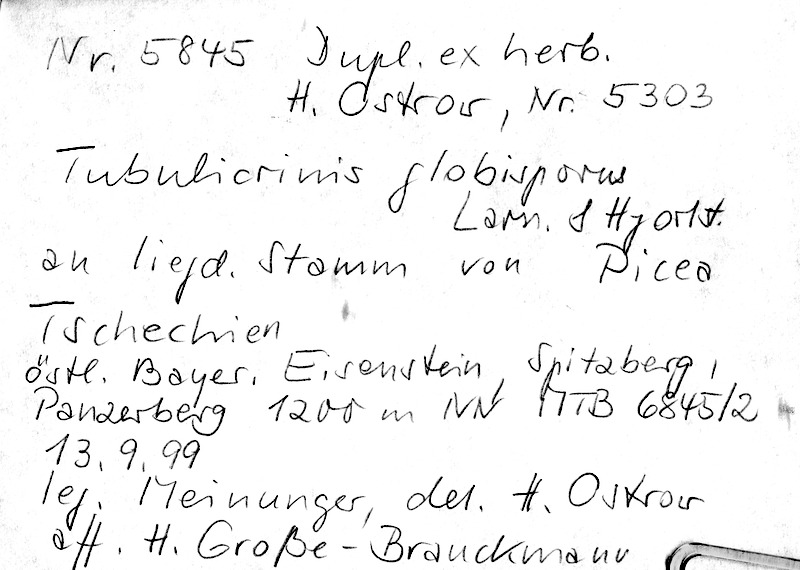 Nr. 5845 Dupl. ex herb.
H. Ostrow, Nr. 5303
Tubulicrinis globisporus
Larss. & Hjortst.
an liegd. Stamm von Picea
Tschechien
östl. Bayer. Eisenstein, Spitzberg,
Panzerberg 1200 m NN MTB 6845/2
13.9.99
leg. Meinunger, det. H. Ostrow
aff. H. Große-Brauckmann